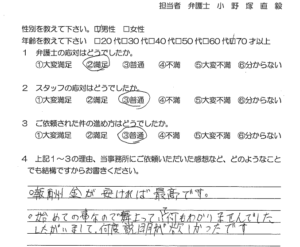 担当者 弁護士 小野塚直毅
性別を教えて下さい。☑男性 □女性
年齢を教えて下さい □20代□30代□40代□50代□60代☑70才以上
1 弁護士の応対はどうでしたか。
①大変満足 ②満足 ③普通 ④不満 ⑤大変不満 ⑥分からない
2 スタッフの応対はどうでしたか。
①大変満足 ②満足 ③普通 ④不満 ⑤大変不満 ⑥分からない
3 ご依頼された件の進め方はどうでしたか。
①大変満足 ②満足 ③普通 ④不満 ⑤大変不満 ⑥分からない
4 上記1～3の理由、当事務所にご依頼いただいた感想など、どのようなこと
でも結構ですからお書きください。
○報酬金が安ければ最高です。
○始めての事なので舞上って何もわかりませんでした
したがいまして、何度説明が欲しかったです